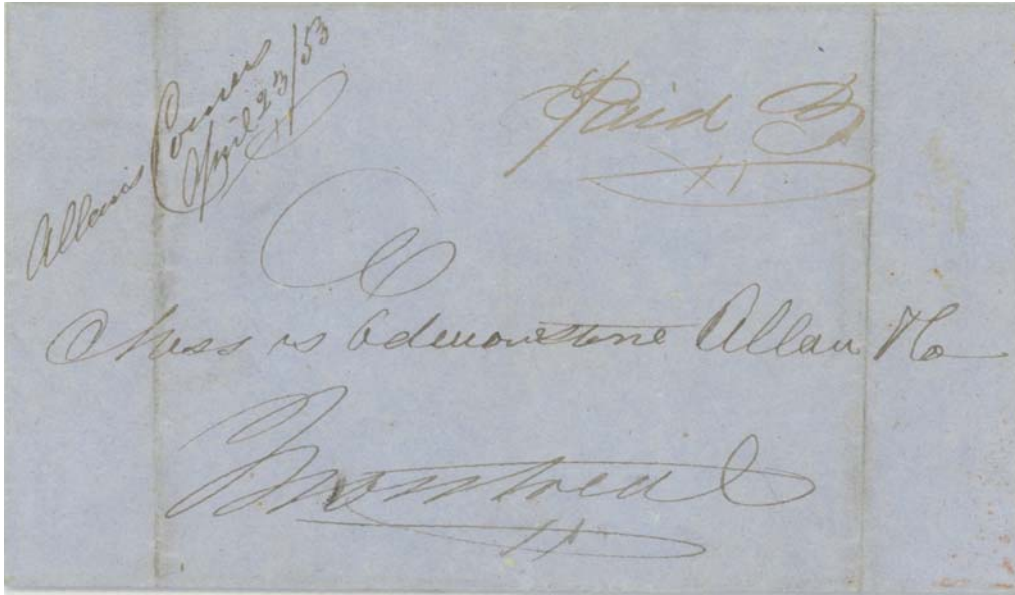 Allan's Corners
April 23/53
Paid 3
Mess rs Edmonstone Allan & Co
Montreal